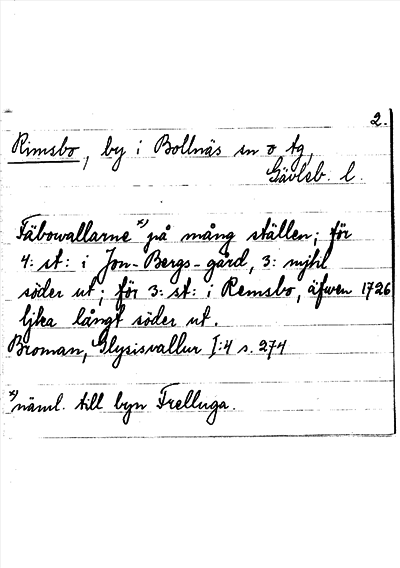 2.
Rimsbo, by i Bollnäs sn o tg,
Gävleb. l.
Fäbowallarne x) på mång ställen; för
4: st: i Jon-Bergs-gård, 3: mjhl
söder ut; för 3: st: i Remsbo, äfwen 1726
ljka långt söder ut.
Broman, Glysisvallur I:4 s. 274
x) näml. till byn Frelluga.